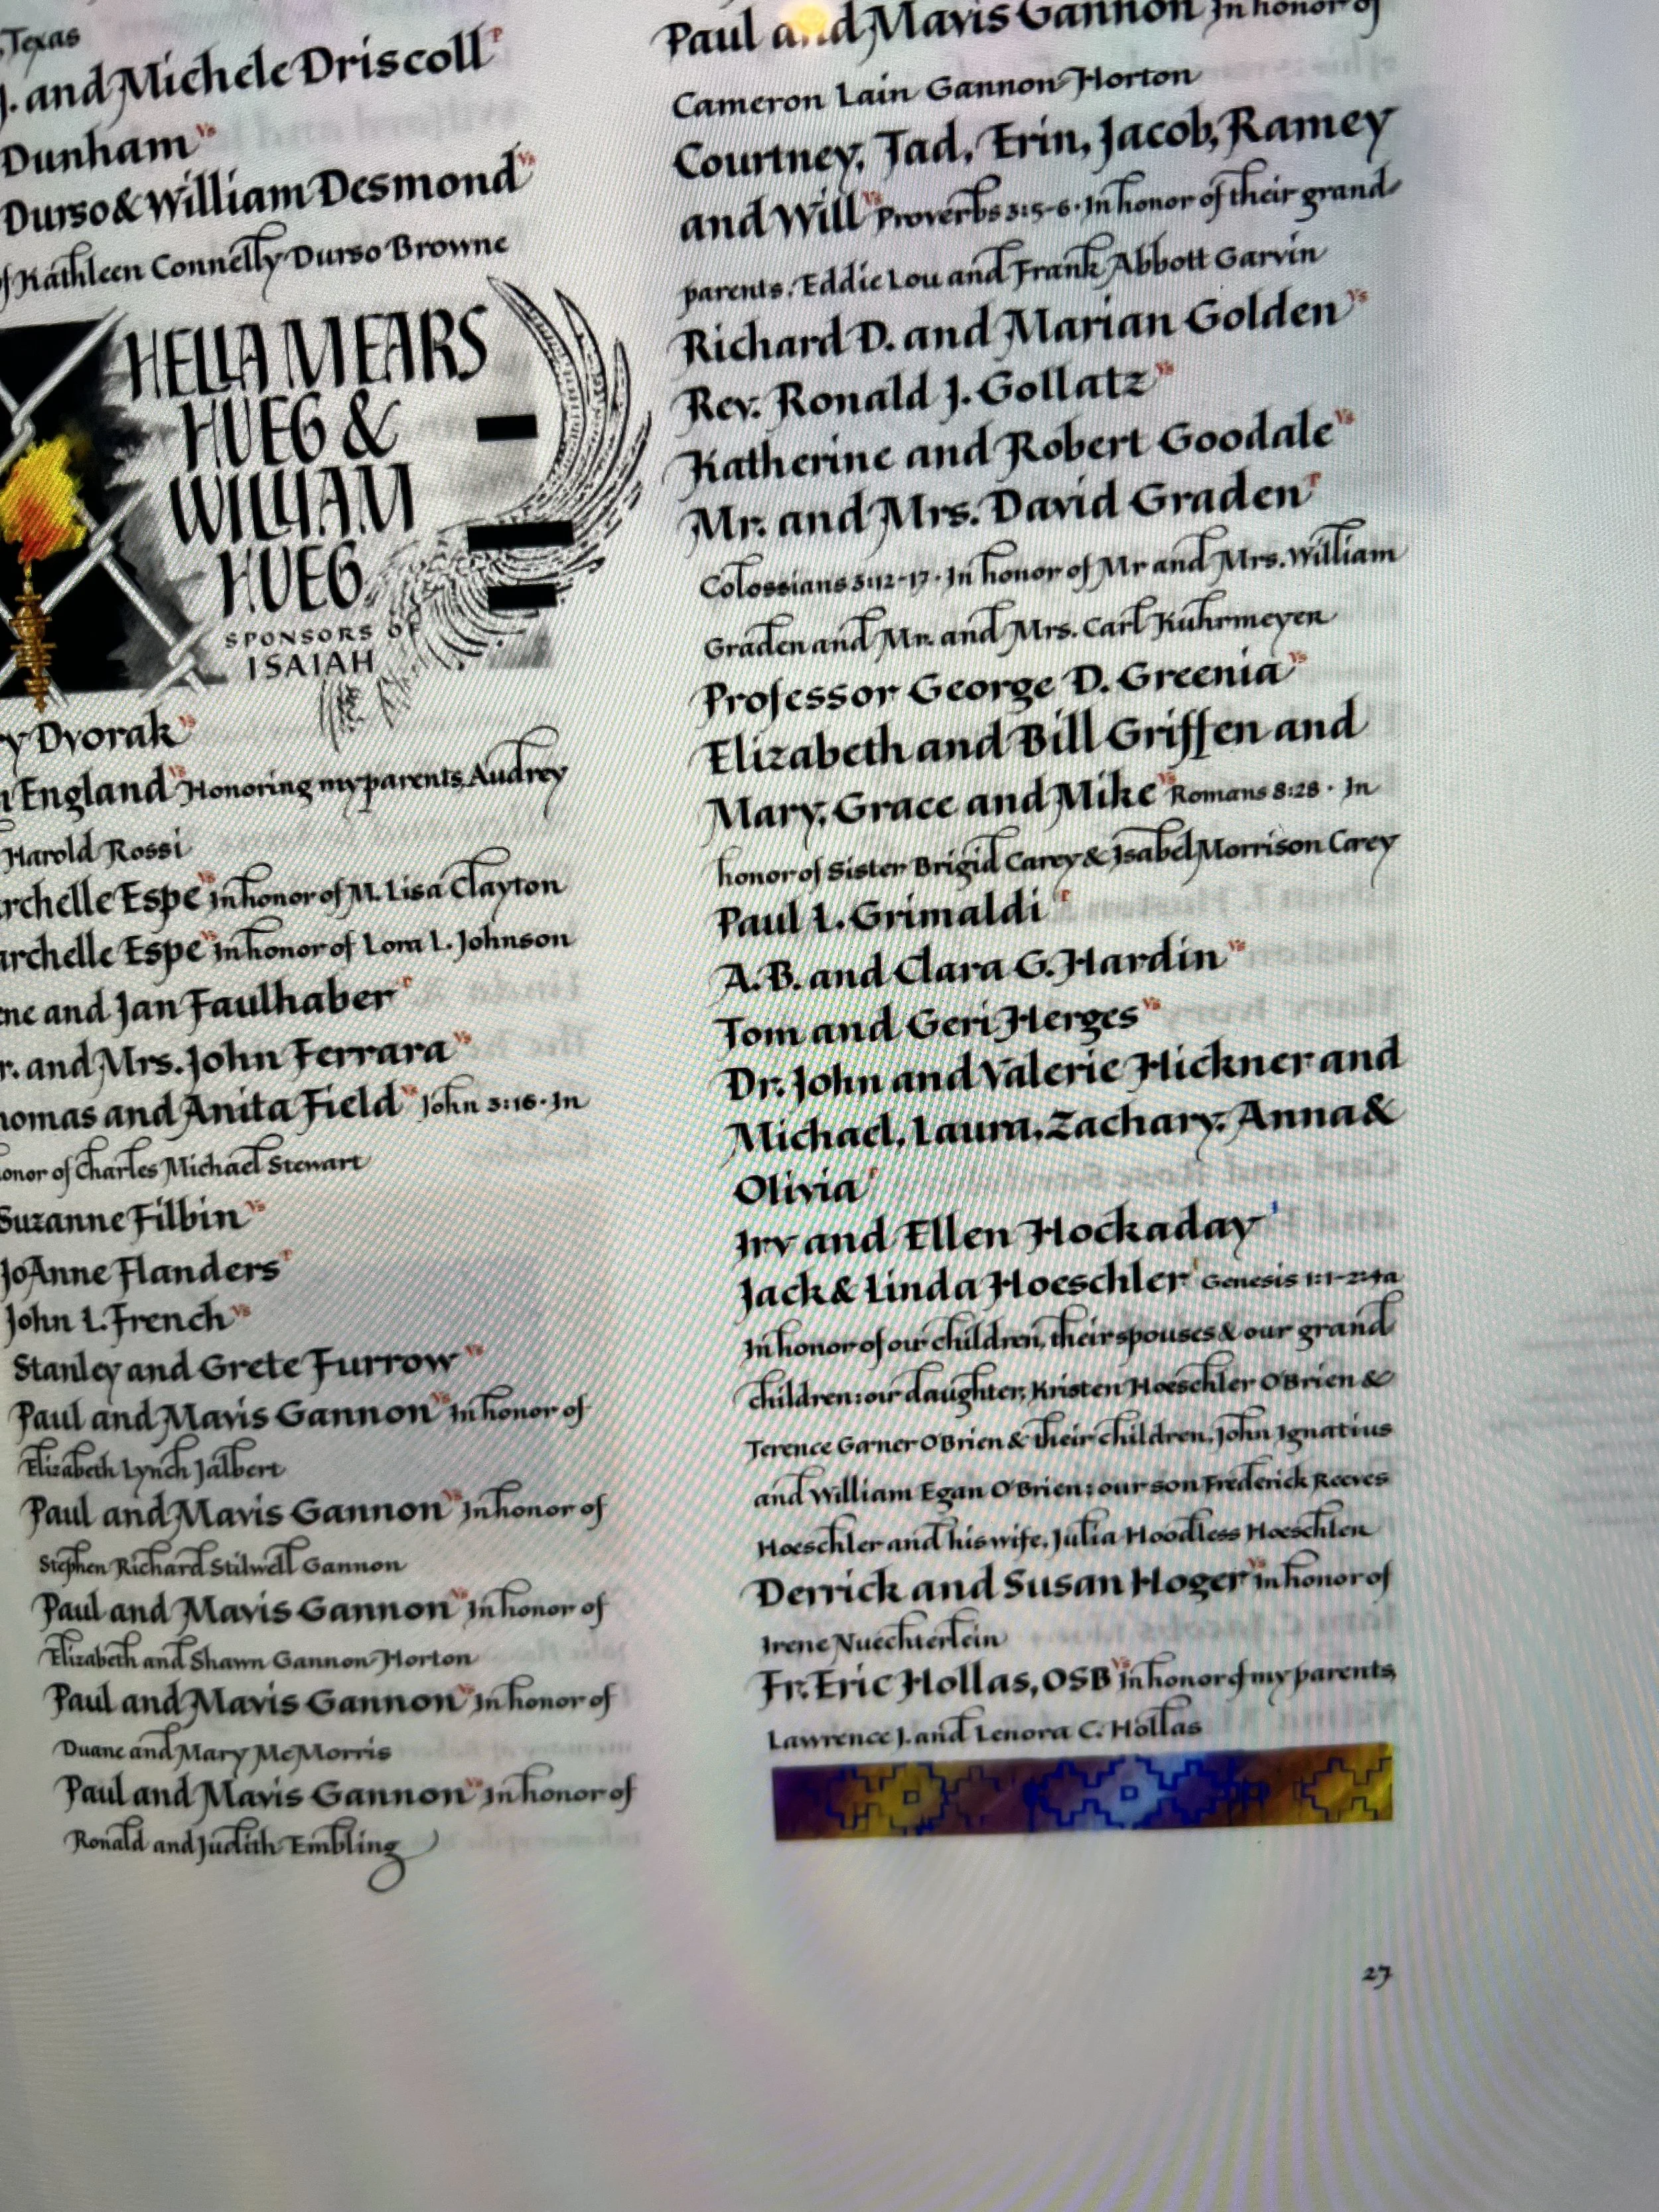 Texas
J. and Michele Driscoll P
Dunham VS
Durso & William Desmond VS
of Kathleen Connelly Durso Browne
HELLA MEARS
HUEG &
WILLIAM
HUEG
SPONSORS OF
ISAIAH
y Dvorak VS
n England VS Honoring my parents, Audrey
Harold Rossi
rchelle Espe VS In honor of M. Lisa Clayton
archelle Espe VS In honor of Lora L. Johnson
ne and Jan Faulhaber P
r. and Mrs. John Ferrara VS
homas and Anita Field VS John 3:16 · In
onor of Charles Michael Stewart
Suzanne Filbin VS
JoAnne Flanders P
John L. French VS
Stanley and Grete Furrow VS
Paul and Mavis Gannon VS In honor of
Elizabeth Lynch Jalbert
Paul and Mavis Gannon VS In honor of
Stephen Richard Stilwell Gannon
Paul and Mavis Gannon VS In honor of
Elizabeth and Shawn Gannon-Horton
Paul and Mavis Gannon VS In honor of
Duane and Mary McMorris
Paul and Mavis Gannon VS In honor of
Ronald and Judith Embling
Paul and Mavis Gannon In honor of
Cameron Lain Gannon-Horton
Courtney, Tad, Erin, Jacob, Ramey
and Will VS Proverbs 3:5-6 · In honor of their grand-
parents, Eddie Lou and Frank Abbott Garvin
Richard D. and Marian Golden VS
Rev. Ronald J. Gollatz VS
Katherine and Robert Goodale VS
Mr. and Mrs. David Graden P
Colossians 3:12-17 · In honor of Mr and Mrs. William
Graden and Mr. and Mrs. Carl Kuhrmeyer
Professor George D. Greenia VS
Elizabeth and Bill Griffen and
Mary, Grace and Mike VS Romans 8:28 · In
honor of Sister Brigid Carey & Isabel Morrison Carey
Paul L. Grimaldi P
A.B. and Clara G. Hardin VS
Tom and Geri Herges VS
Dr. John and Valerie Hickner and
Michael, Laura, Zachary, Anna &
Olivia P
Irv and Ellen Hockaday
Jack & Linda Hoeschler Genesis 1:1-2:4a
In honor of our children, their spouses & our grand
children: our daughter, Kristen Hoeschler O'Brien &
Terence Garner O'Brien & their children, John Ignatius
and William Egan O'Brien: our son Frederick Reeves
Hoeschler and his wife, Julia Hoodless Hoeschler
Derrick and Susan Hoger VS In honor of
Irene Nuechterlein
Fr. Eric Hollas, OSB VS In honor of my parents,
Lawrence J. and Lenora C. Hollas
27